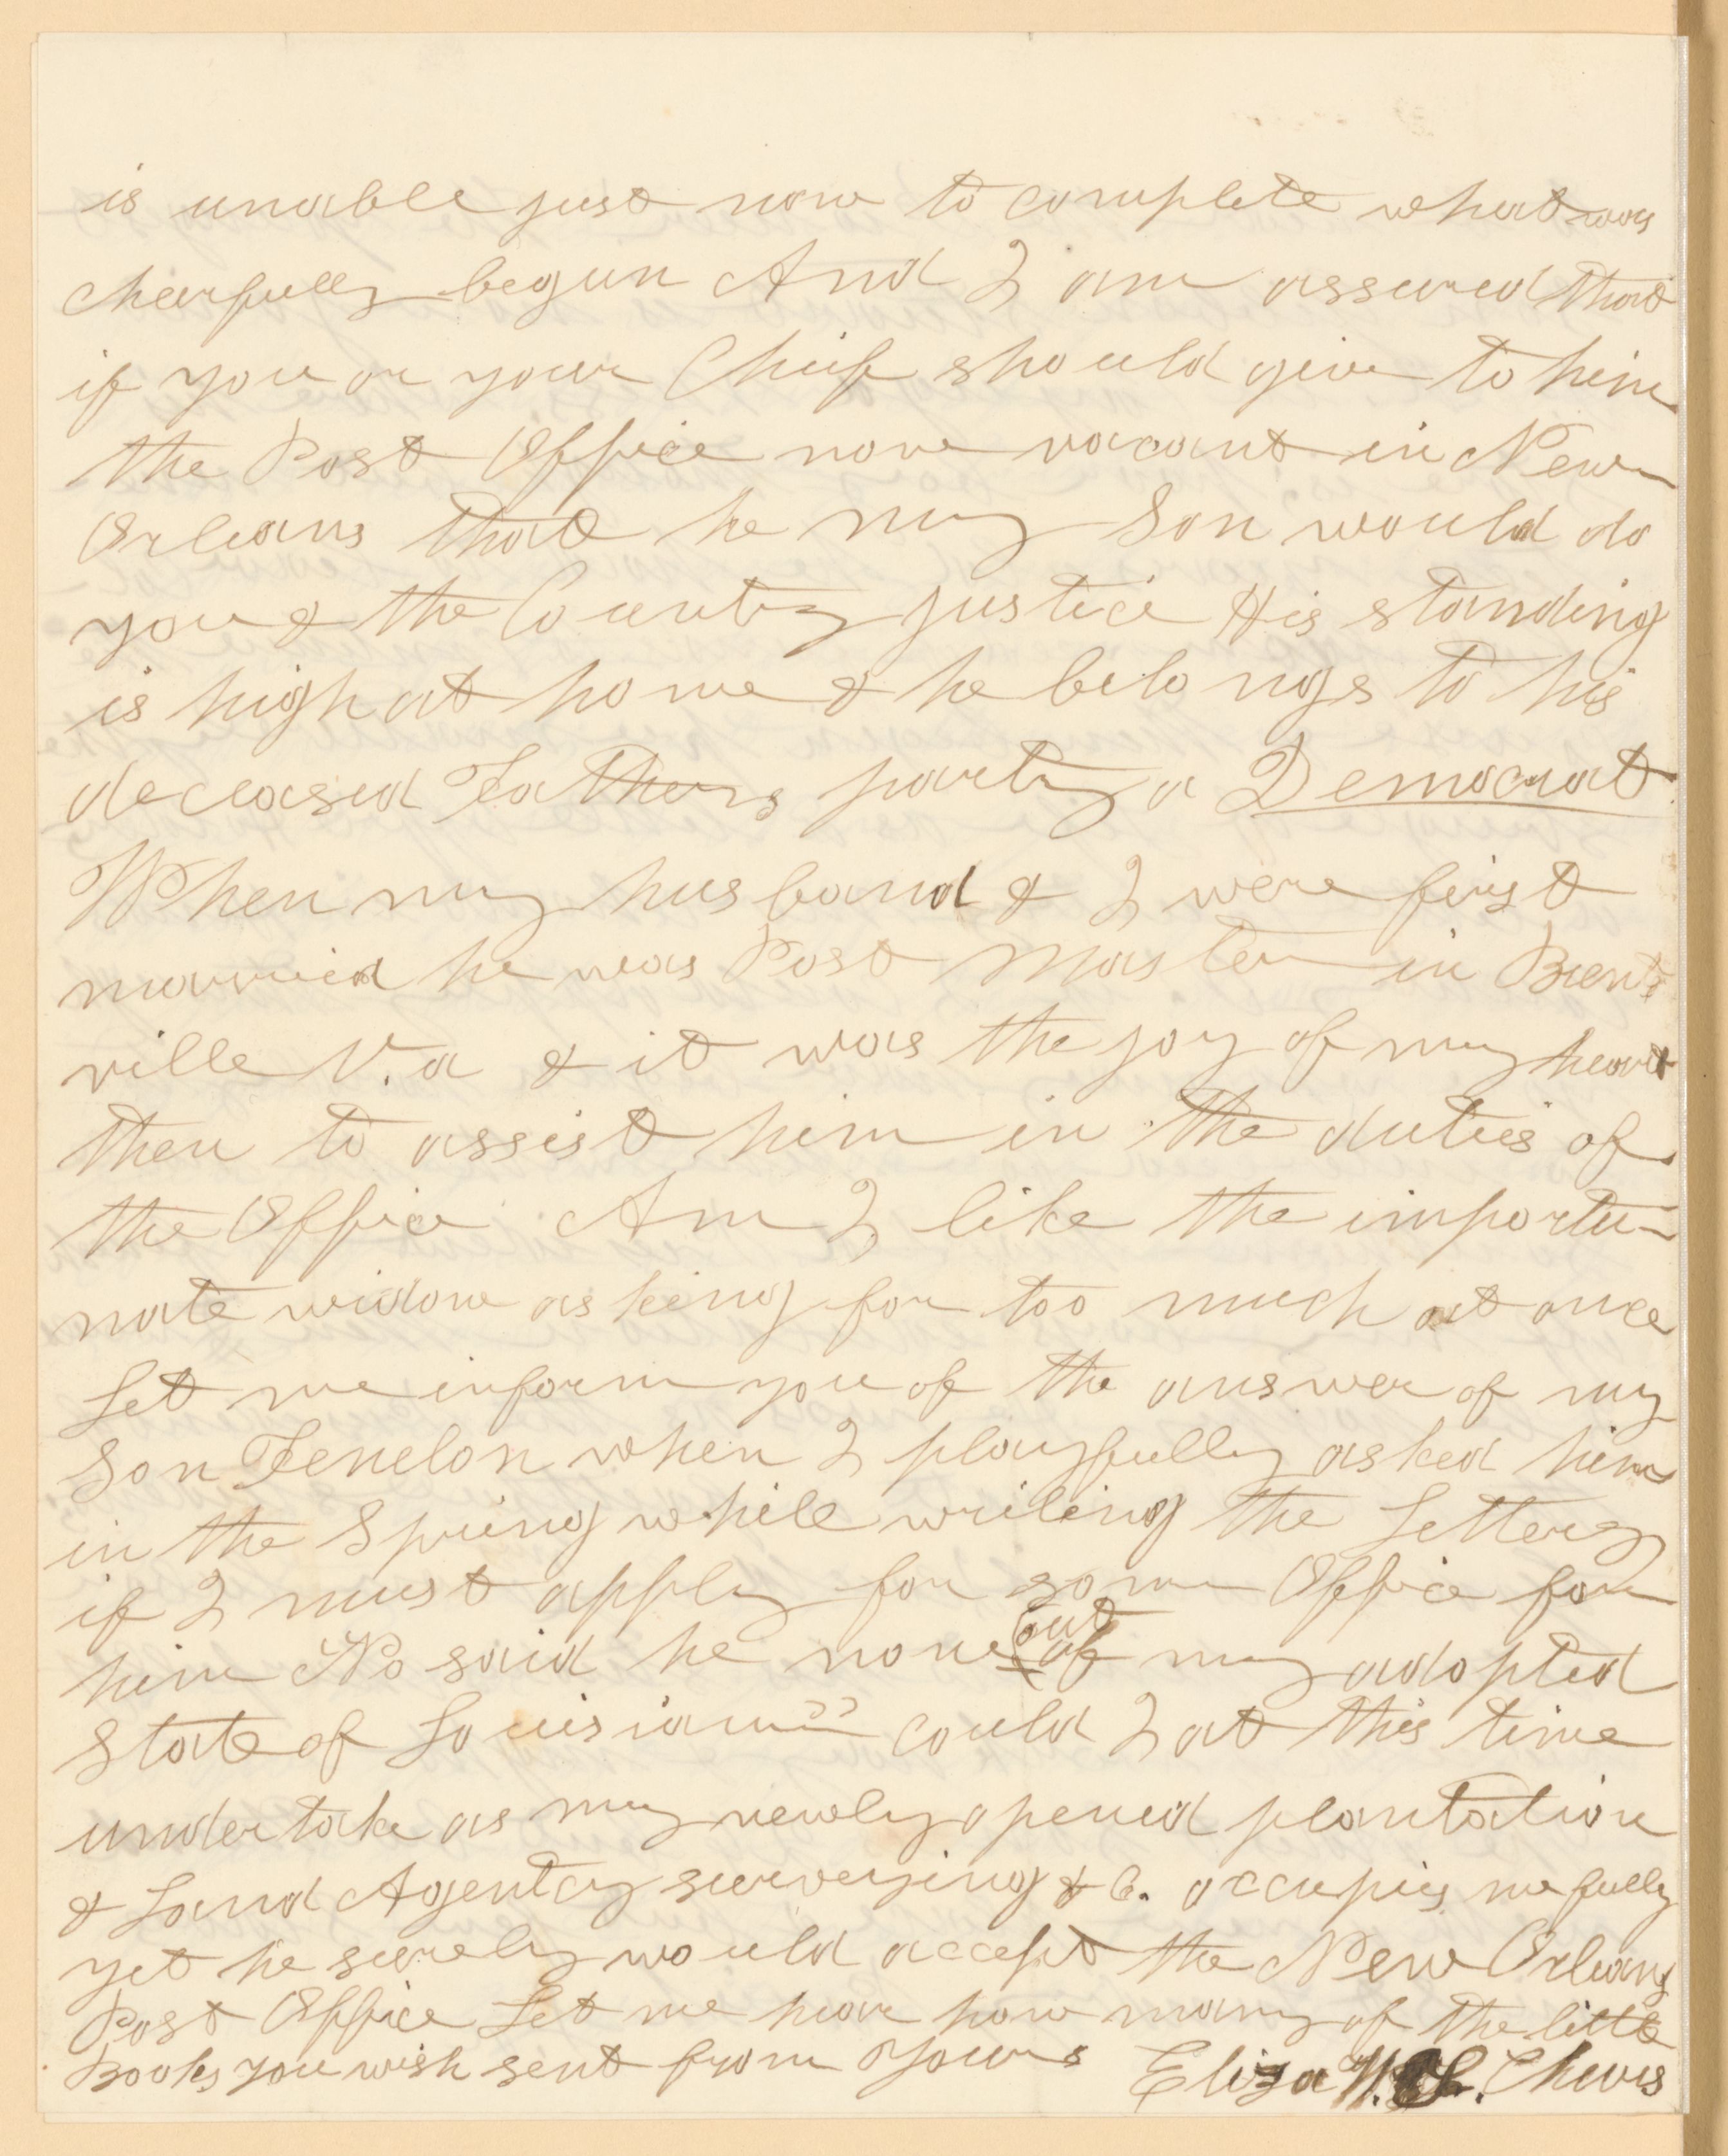 is unable just now to complete what was
cheerfully begun And I am assured that
if you or your Chief should give to him
the Post Office now vacant in New
Orleans that he my Son would do
you & the Country justice His standing
is high at home & he belongs to his
deceased Fathers party a Democrat
When my husband & I were first
married he was Post Master in Brents
ville V.a & it was the joy of my heart
then to assist him in the duties of
the Office Am I like the importu-
nate widow asking for too much at once
Let me inform you of the answer of my
Son Fenelon when I playfully asked him
in the Spring while writing the Letters
if I must apply for some Office for
him No said he none out of my adopted
State of Louisiana" could I at this time
undertake as my newly opened plantation
& Land Agentcy surveying & C. occupies me fully
yet he surely would accept the New Orleans
Post Office Let me hear how many of the little
Books you wish sent from Yours Eliza W. Chews